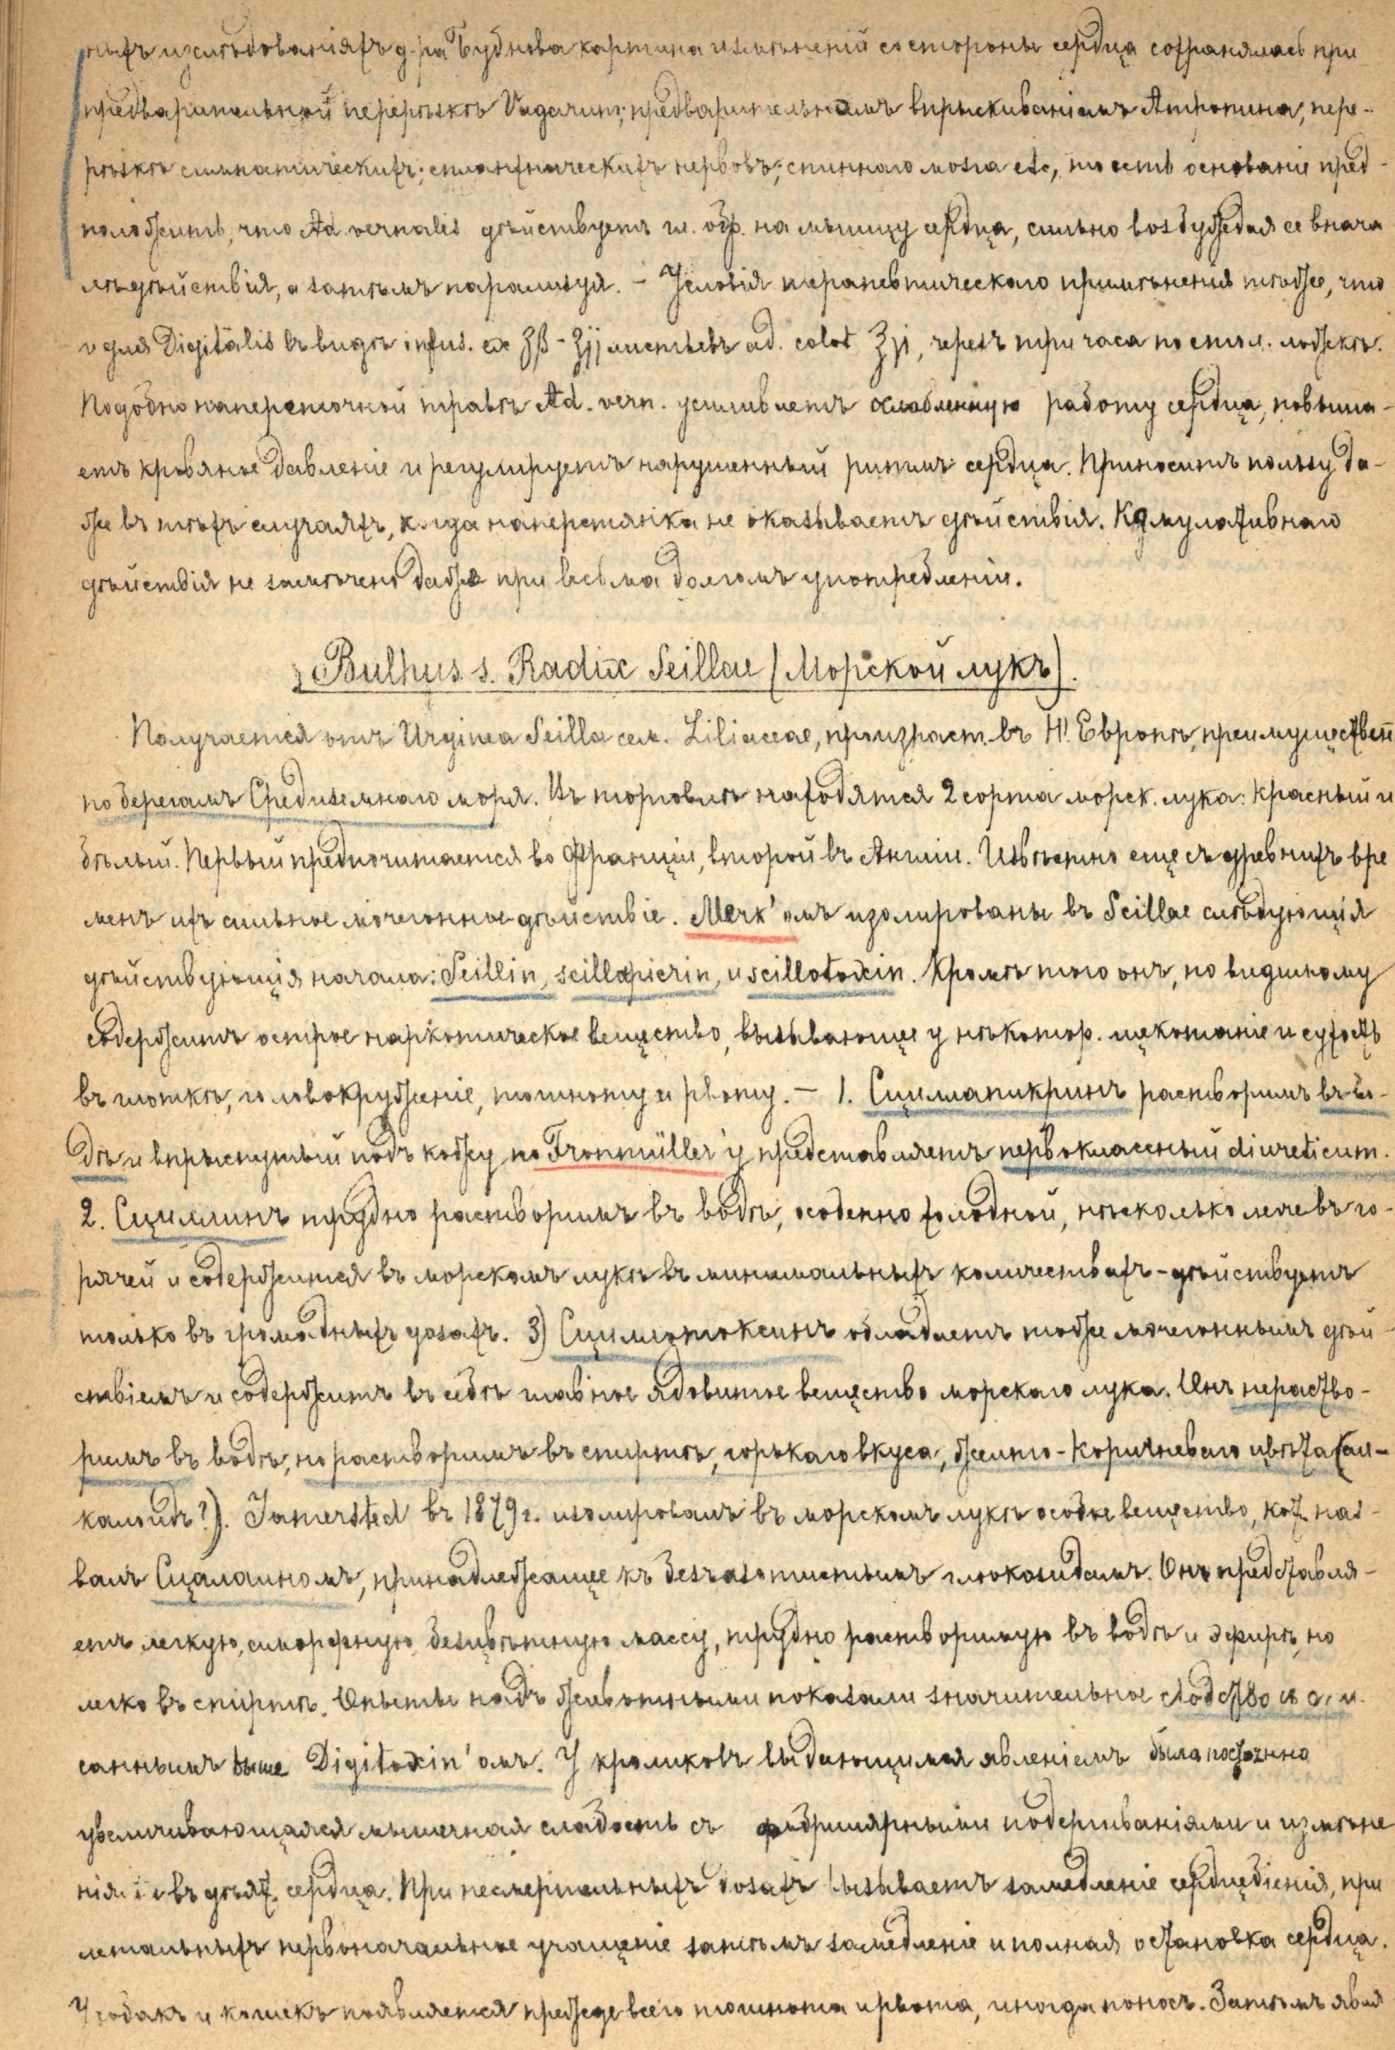 ныхъ изслѣдованіяхъ д-ра Бубнова картина измѣненій со стороны сердца сохранялась при
предварительной перерѣзкѣ Vagaцит; предварительномъ впрыскиваніемъ Атропина, пере-
рѣзкѣ симпатическихъ; спланхническихъ нервовъ; спиннаго мозга etc, то есть основаніе пред-
положить, что Ad. vernalis дѣйствуетъ гл. обр. на мышцу сердца, сильно возбуждая ее внача
лѣ дѣйствія, а затѣмъ парализуя. – Условія терапевтическаго примѣненія тѣ же, что
и для Digitalis въ видѣ infus. ex ʒβ – ʒjj листьевъ ad. colat ℥vj, черезъ три часа по стол. ложкѣ.
Подобно наперсточной травѣ Ad. vern. усиливаетъ ослабленную работу сердца, повыша-
етъ кровяное давленіе и регулируетъ нарушенный ритмъ сердца. Приноситъ пользу да-
же въ тѣхъ случаяхъ, когда наперстянка не оказываетъ дѣйствія. Кумулативнаго
дѣйствія не замѣчено даже при весьма долгомъ употребленіи.
Bulhus s. Radix Scillae (Морской лукъ).
Получается отъ Urginea Scilla сем. Liliaceae, произраст. въ Ю. Европѣ, преимуществен
по берегамъ Средиземнаго моря. Въ торговлѣ находятся 2 сорта морск. лука: красный и
бѣлый. Первый предпочитается во Франціи, второй въ Англіи. Извѣстно еще съ древнихъ вре
менъ ихъ сильное мочегонное дѣйствіе. Merk'омъ изолированы въ Scillae слѣдующія
дѣйствующія начала: Scillin, scillapicrin, и scillotoxin. Кромѣ того онъ, по видимому
содержитъ острое наркотическое вещество, вызывающее у нѣкотор. щекотаніе и сухость
въ глоткѣ, головокруженіе, тошноту и рвоту. – 1. Сциллапикринъ растворимъ въ во-
дѣ и впрыснутый подъ кожу по Fronmüller'у представляетъ первоклассный diureticum.
2. Сциллинъ трудно растворимъ въ водѣ, особенно холодной, нѣсколько легче въ го-
рячей и содержится въ морскомъ лукѣ въ минимальныхъ количествахъ – дѣйствуетъ
только въ громадныхъ дозахъ. 3) Сциллотоксинъ обладаетъ тоже мочегоннымъ дѣй-
ствіемъ и содержитъ въ себѣ главное ядовитое вещество морскаго лука. Онъ нераство-
римъ въ водѣ, но растворимъ въ спиртѣ, горькаго вкуса, желто-коричневаго цвѣта (ал-
калоидъ?). Jamersted въ 1879 г. изолировалъ въ морскомъ лукѣ особое вещество, кот. наз-
валъ Сцалаиномъ, принадлежащее къ безъазотистымъ глюкозидамъ. Онъ представля-
етъ легкую, аморфную безцвѣтную массу, трудно растворимую въ водѣ и эфирѣ, но
легко въ спиртѣ. Опыты надъ животными показали значительное сходство съ опи
саннымъ выше Digitoxin'омъ. У кроликовъ выдающимся явленіемъ была постоянно
увеличивающаяся мышечная слабость съ фибриллярными подергиваніями и измѣне
нія въ дѣят. сердца. При несмертельныхъ дозахъ вызываетъ замедленіе сердцебіенія, при
летальныхъ первоначальное учащеніе затѣмъ замедленіе и полная остановка сердца.
У собакъ и кошекъ появляется прежде всего тошнота и рвота, иногда поносъ. Затѣмъ явля